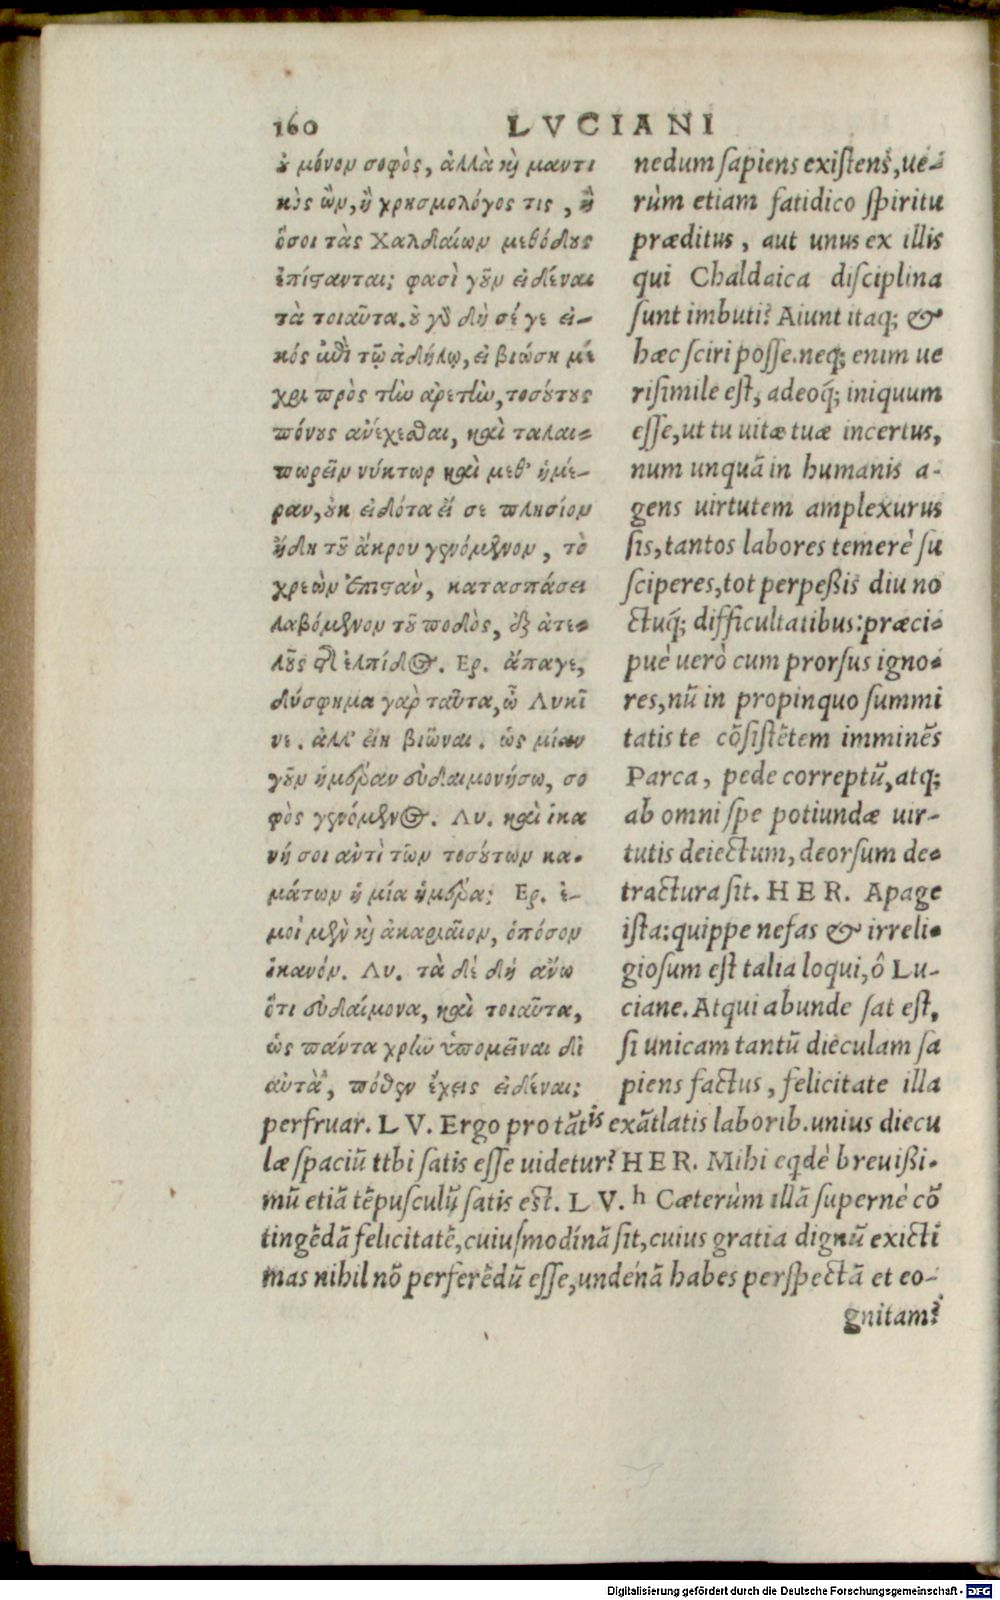 160 LVCIANI
οὐ μόνον σοφὸς, ἀλλὰ κỳ μαντι
κὸς ὢν, ἢ χρησμολόγος τις, ἢ
ὅσοι τὰς Χαλδαίων μεθόδους
ἐπίστανται; φασὶ γοῦν εἰδέναι
τὰ τοιαῦτα. οὐ γὰρ δὴ σέ γε εἰ-
κός ἐπὶ τῷ ἀδήλῳ, εἰ βιώσῃ μέ
χρι πρὸς τὴν ἀρετὴν, τοσούτους
πόνους ἀνέχεσθαι, καὶ ταλαι-
πωρεῖν νύκτωρ καὶ μεθ' ἡμέ-
ραν, οὐκ εἰδότα εἴ σε πλησίον
ἤδη τοῦ ἄκρου γενόμενον, τὸ
χρεὼν ἐπιστὰν, κατασπάσει
λαβόμενον τοῦ ποδὸς, ἐξ ἀτε-
λοῦς τῆς ἐλπίδος. Ερ. ἄπαγε,
δύσφημα γὰρ ταῦτα, ὦ Λυκῖ
νε. ἀλλ' εἴη βιῶναι. ὡς μίαν
γοῦν ἡμέραν εὐδαιμονήσω, σο
φὸς γενόμενος. Λυ. καὶ ἱκα
νή σοι ἀντὶ τῶν τοσούτων κα-
μάτων ἡ μία ἡμέρα; Ερ. ἐ-
μοὶ μὲν κỳ ἀκαριαῖον, ὁπόσον
ἱκανόν. Λυ. τὰ δὲ δὴ ἄνω
ὅτι εὐδαίμονα, καὶ τοιαῦτα,
ὡς πάντα χρὴν ὑπομεῖναι δι
αὐτὰ, πόθεν ἔχεις εἰδέναι;
nedum sapiens existens, ue-
rùm etiam fatidico spiritu
præditus, aut unus ex illis
qui Chaldaica disciplina
sunt imbuti? Aiunt itaq; &
hæc sciri posse. neq; enim ue
risimile est, adeoq́; iniquum
esse, ut tu uitæ tuæ incertus,
num unquã in humanis a-
gens uirtutem amplexurus
sis, tantos labores temerè su
sciperes, tot perpeßis diu no
ctuq́; difficultatibus: præci-
puè uerò cum prorsus igno-
res, nũ in propinquo summi
tatis te cõsistẽtem imminẽs
Parca, pede correptũ, atq;
ab omni spe potiundæ uir-
tutis deiectum, deorsum de-
tractura sit. HER. Apage
ista: quippe nefas & irreli-
giosum est talia loqui, ô Lu-
ciane. Atqui abunde sat est,
si unicam tantũ dieculam sa
piens factus, felicitate illa
perfruar. LV. Ergo pro tãtis exãtlatis laborib. unius diecu
læ spaciũ tibi satis esse uidetur? HER. Mihi eqdẽ breuißi-
mũ etiã tẽpusculũ satis est. LV. h Cæterùm illã supernè cõ
tingẽdã felicitatẽ, cuiusmodinã sit, cuius gratia dignũ exicti
mas nihil nõ perferẽdũ esse, undenã habes perspectã et co-
gnitam?
Digitalisierung gefördert durch die Deutsche Forschungsgemeinschaft - DFG